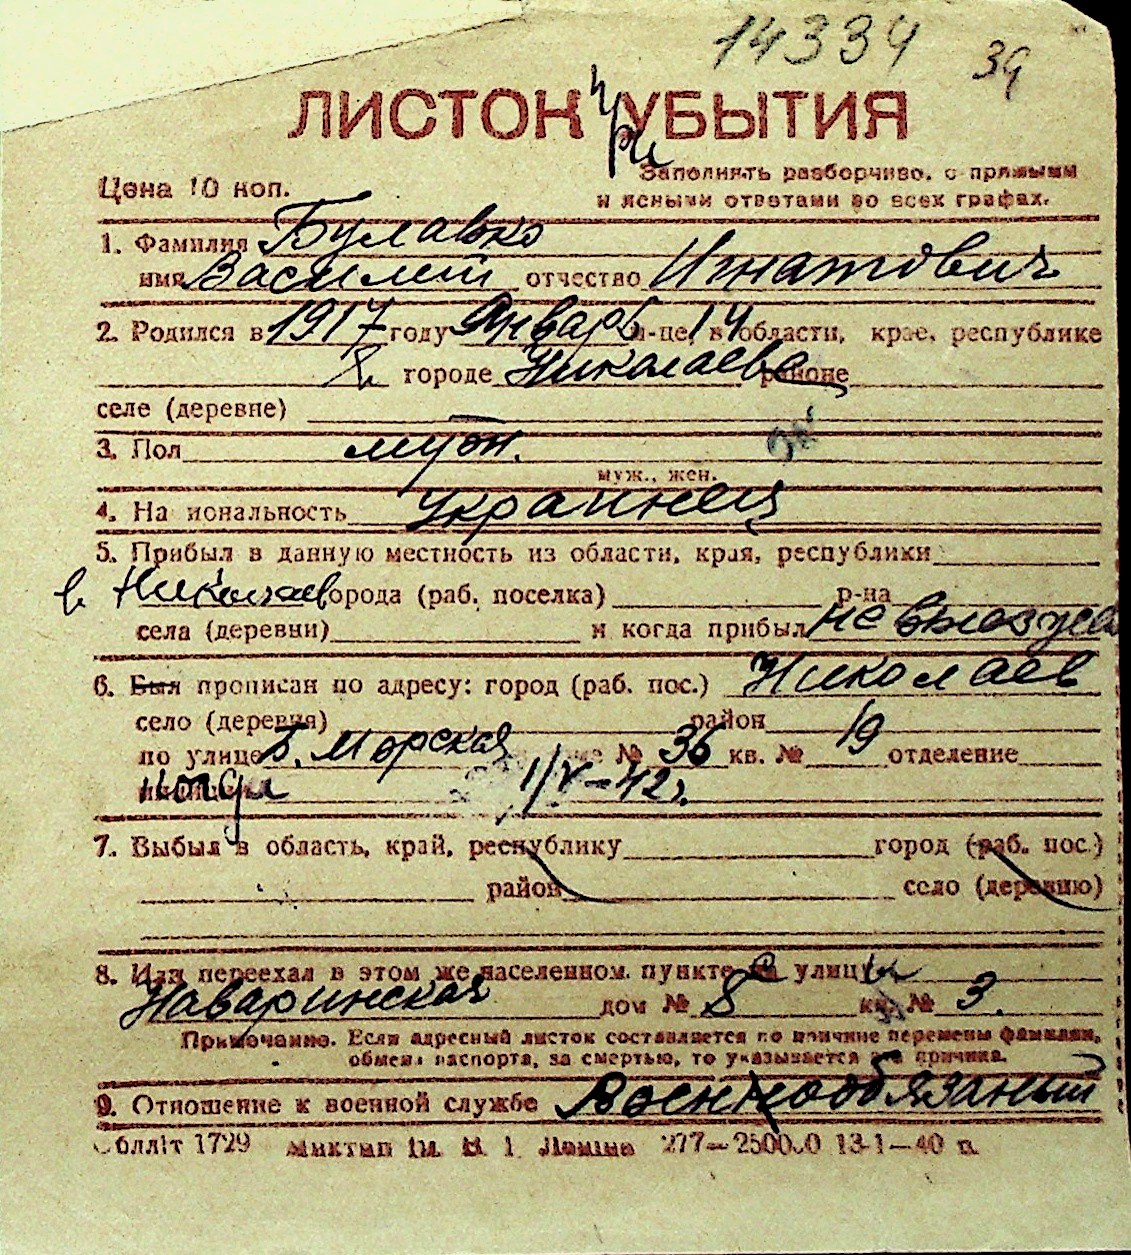 14334 39
ЛИСТОК при УБЫТИЯ
Цена 10 коп.
Заполнять разборчиво, с прямыми
и ясными ответами во всех графах.
1. Фамилия Булавко
имя Василий отчество Игнатович
2. Родился в 1917 году Январь м-це, 14 в области, крае, республике
в городе Николаеве районе
селе (деревне)
3. Пол муж.
муж., жен.
4. На иональность украинец
5. Прибыл в данную местность из области, края, республики
в Николаев города (раб. поселка) р-на
села (деревни) и когда прибыл не выезжал
6. Был прописан по адресу: город (раб. пос.) Николаев
село (деревня) район
по улице Б. Морская № 36 кв. № 19 отделение
1/V-42г.
7. Выбыл в область, край, республику город (раб. пос.)
район село (деревню)
8. Или переехал в этом же населенном пункте с улицы
Наваринская дом № 8 кв. № 3.
Примечание. Если адресный листок составляется по причине перемены фамилии,
обмена паспорта, за смертью, то указывается эта причина.
9. Отношение к военной службе Военнообязаный
Обллiт 1729 277—250000 13-1—40 п.